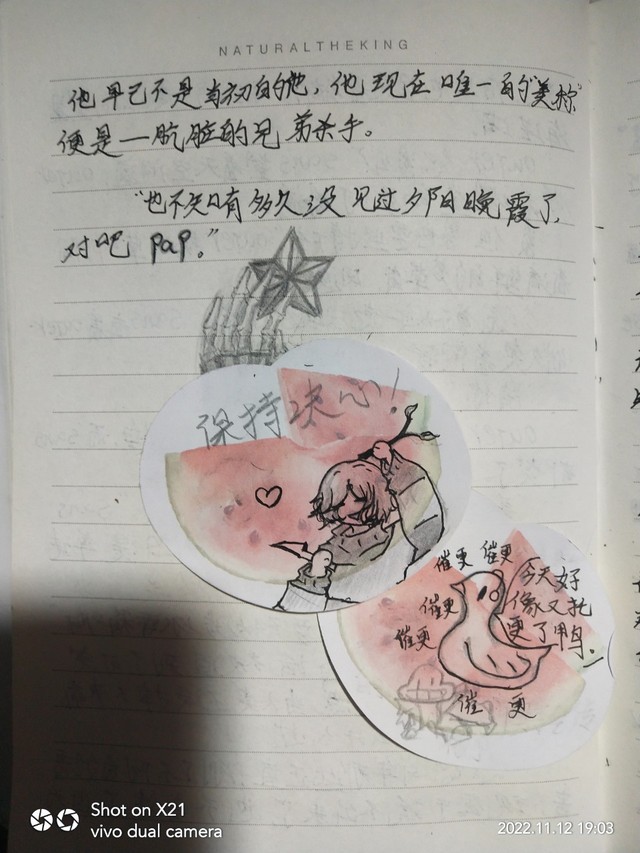 NATURALTHEKING
他早已不是当初的他，他现在唯一的“美称”
便是一肮脏的兄弟杀手。
“也不知有多久没见过夕阳晚霞了，
对吧 pap。”
保持决心！
催更 催更
今天好
像又托
更了鸭.
催更
催更
催 更
Shot on X21
vivo dual camera
2022.11.12 19:03